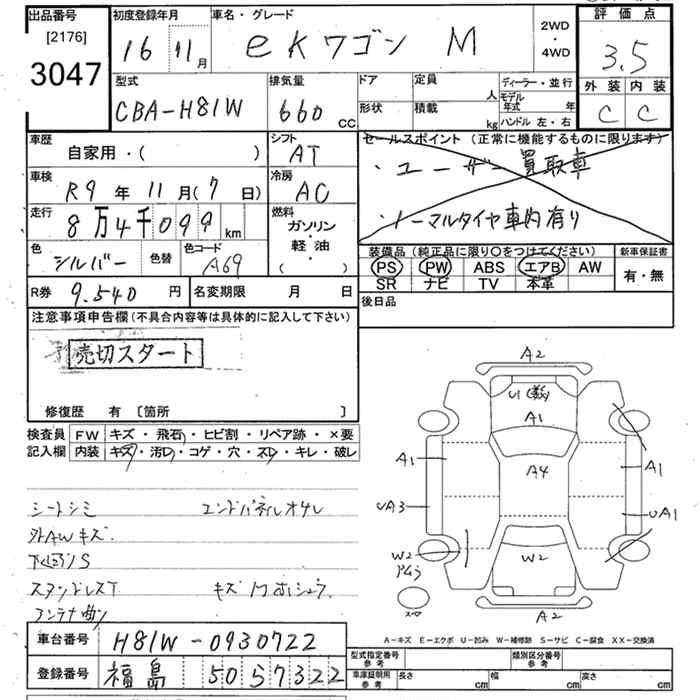 出品番号 初度登録年月 車名・グレード 2WD・4WD 評価点
[2176]
3047 16 11月 eKワゴン M 3.5
型式 排気量 ドア 定員 人 ディーラー・並行 外装 内装
CBA-H81W 660 CC 形状 積載 kg モデル年式 年 ハンドル 左・右 C C
車歴 シフト セールスポイント (正常に機能するものに限ります)
自家用・( ) AT ・ユーザー買取車
車検 R9年 11月(7日) 冷房 AC
走行 8万4千099km 燃料 ガソリン・軽油・( ) ・ノーマルタイヤ車内有り
色 シルバー 色替 色コード A69 装備品 (純正品に限り○をつけてください) 新車保証書
PS PW ABS エアB AW 有・無
SR ナビ TV 本革
R券 9.540円 名変期限 月 日 後日品
注意事項申告欄(不具合内容等は具体的に記入して下さい)
売切スタート
修復歴 有 [箇所 ]
検査員 FW キズ・飛石・ヒビ割・リペア跡・×要
記入欄 内装 キズ・汚レ・コゲ・穴・スレ・キレ・破レ
シートシミ エンドパネルオサレ
外AWキズ
下回りS
キズ
アンテナ曲り
A2
U1
A1
A1 A4 A1
UA3 UA1
W2 W2
A2
スペ
A-キズ E-エクボ U-凹み W-補修跡 S-サビ C-腐食 XX-交換済
車台番号 H81W-0930722
登録番号 福島 50 57322
型式指定番号参考 類別区分番号参考
車庫証明用参考 長さ cm 幅 cm 高さ cm